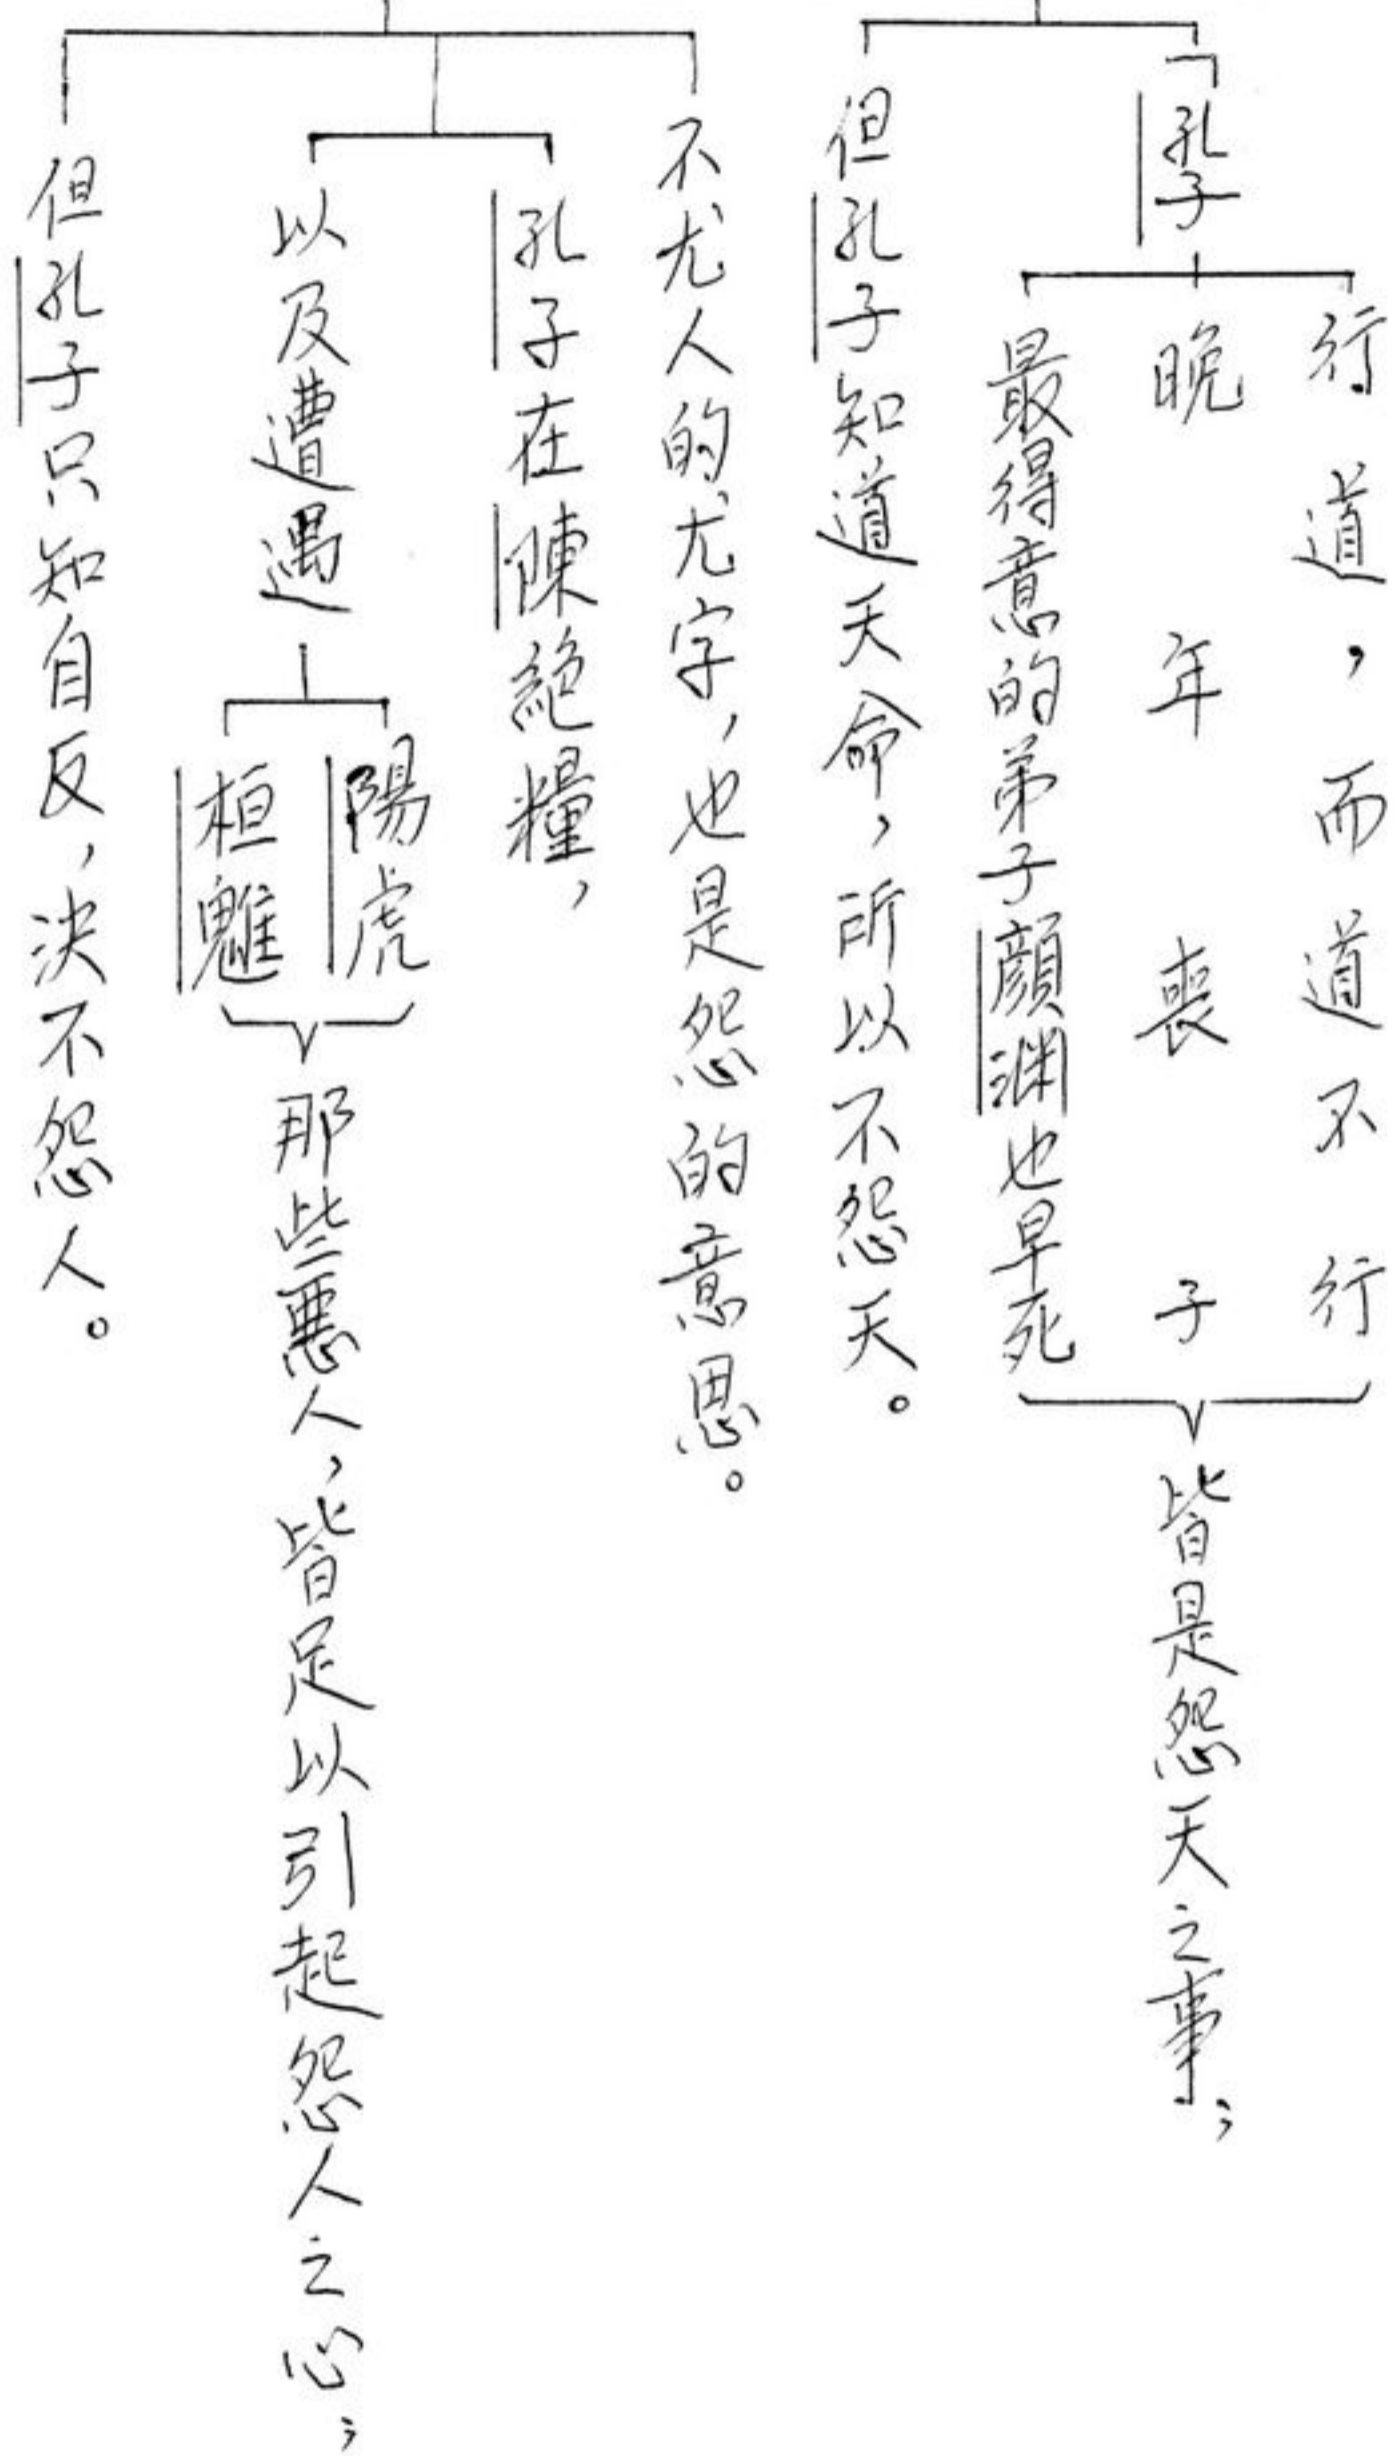 「孔子
行道，而道不行
晚年喪子
最得意的弟子顏淵也早死
皆是怨天之事；
但孔子知道天命，所以不怨天。
不尤人的尤字，也是怨的意思。
孔子在陳絕糧，
以及遭遇
陽虎
桓魋
那些惡人，皆足以引起怨人之心；
但孔子只知自反，決不怨人。